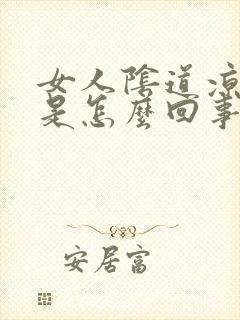 女人陰道凉
是怎麼回事
安居富